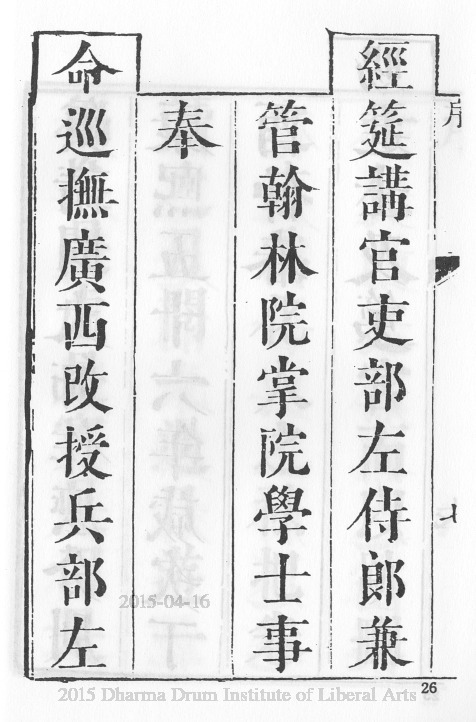 序
經筵講官吏部左侍郎兼
管翰林院掌院學士事
奉
命巡撫廣西改授兵部左
七
26
2015-04-16
2015 Dharma Drum Institute of Liberal Arts